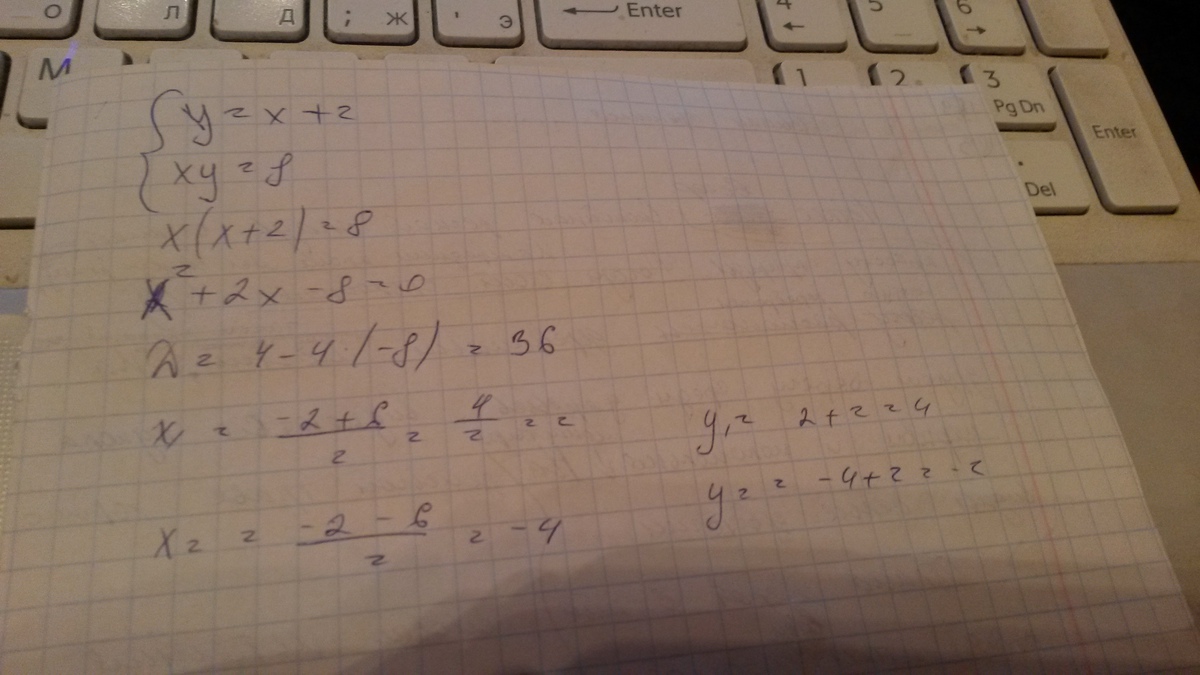 О Л Д ; Ж ' Э Enter 4 5 6
М 1 2 3 Pg Dn Enter
. Del
{ y = x + 2
xy = 8
x(x+2) = 8
x² + 2x - 8 = 0
D = 4 - 4·(-8) = 36
x = (-2 + 6)/2 = 4/2 = 2
y₁ = 2 + 2 = 4
x₂ = (-2 - 6)/2 = -4
y₂ = -4 + 2 = -2